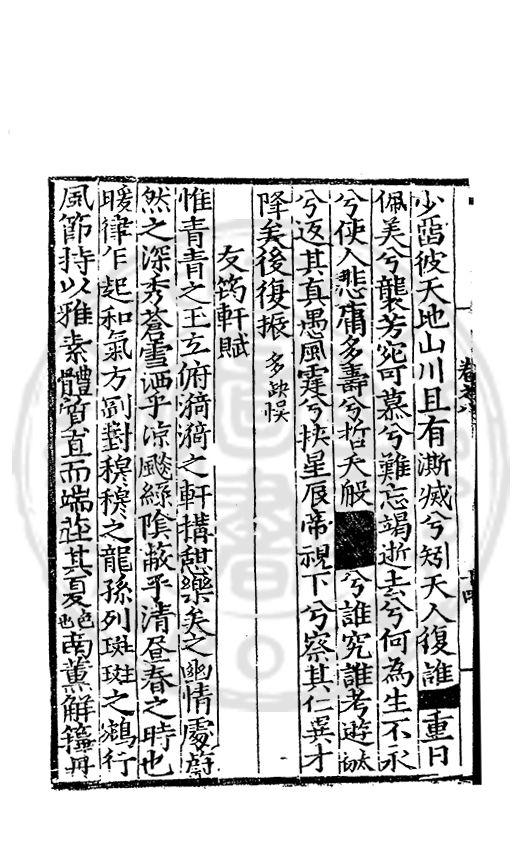 少留彼天地山川且有澌滅兮矧天人復誰■重曰
佩美兮襲芳宛可慕兮難忘竭逝去兮何為生不永
兮使人悲庸多壽兮哲夭殀■兮誰究誰考遊
兮返其真愚風霆兮挾星辰帝視下兮察其仁異才
降矣後復振多缺悮
友筠軒賦
惟青青之玉立俯漪漪之軒構憩樂矣之幽情處蔚
然之深秀蒼雪洒乎涼颸綠陰蔽乎清昼春之時也
暖律乍起和氣方副對穆穆之龍孫列斑斑之鵷行
風節持以雅素體質直而端莊其夏也南薫解籜丹
卷之八
十四